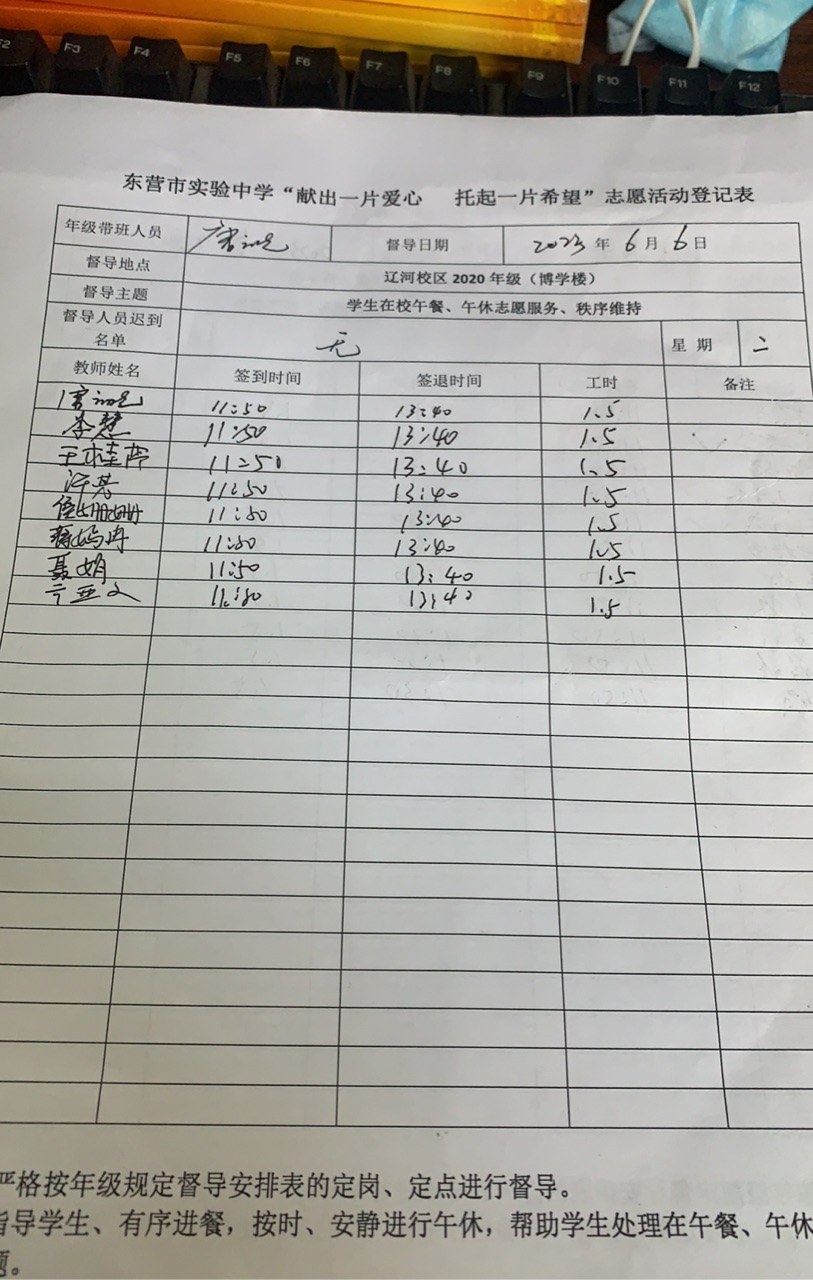 F2 F3 F4 F5 F6 F7 F8 F9 F10 F11 F12
东营市实验中学“献出一片爱心 托起一片希望”志愿活动登记表
年级带班人员 督导日期 2023年6月6日
督导地点 辽河校区2020年级（博学楼）
督导主题 学生在校午餐、午休志愿服务、秩序维持
督导人员迟到名单 无 星期 二
教师姓名 签到时间 签退时间 工时 备注
11:50 13:40 1.5
李慧 11:50 13:40 1.5
王桂芹 11:50 13:40 1.5
11:50 13:40 1.5
侯姗姗 11:50 13:40 1.5
11:50 13:40 1.5
聂娟 11:50 13:40 1.5
亚文 11:50 13:40 1.5
严格按年级规定督导安排表的定岗、定点进行督导。
指导学生、有序进餐，按时、安静进行午休，帮助学生处理在午餐、午休
题。